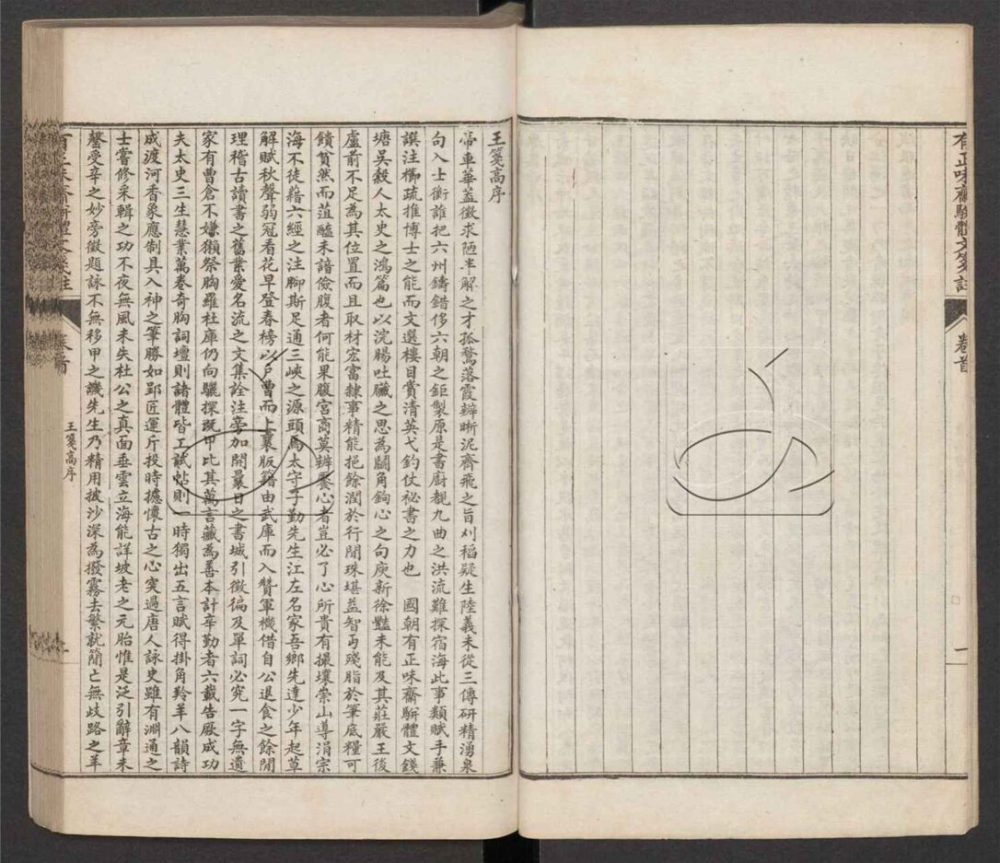 有正味齋駢體文箋註
卷首
一
王箋高序
帝車華蓋徵求陋半解之才孤鶩落霞辯晰泥齊飛之旨刈稻疑生陸義未從三傳研精湧泉
句入士衡誰把六州鑄錯侈六朝之鉅製原是書廚覩九曲之洪流難探宿海此事類賦手兼
譔注櫛疏推博士之能而文選樓目賞清英弋釣仗祕書之力也 國朝有正味齋駢體文錢
塘吳穀人太史之鴻篇也以浣腸吐臟之思為鬭角鉤心之句庾新徐豔未能及其莊嚴王後
盧前不足為其位置而且取材宏富隸事精能挹餘潤於行間珠堪益智丐殘脂於筆底糧可
饋貧然而菹醢未諳儉腹者何能果腹宮商莫辨養心者豈必了心所貴有撮壤崇山導涓宗
海不徒藉六經之注腳斯足通三峽之源頭焉太守子勤先生江左名家吾鄉先達少年起草
解賦秋聲弱冠看花早登春榜以戶曹而上襄版籍由武庫而入贊軍機借自公退食之餘閒
理稽古讀書之舊業愛名流之文集詮注旁加開曩日之書城引徵徧及單詞必究一字無遺
家有曹倉不嫌獺祭胸羅杜庫仍向驪探既甲比其萬言藏為善本計辛勤者六載告厥成功
夫太史三生慧業萬卷奇胸詞壇則諸體皆工試帖則一時獨出五言賦得掛角羚羊八韻詩
成渡河香象應制具入神之筆勝如郢匠運斤投時攄懷古之心突過唐人詠史雖有淵通之
士嘗修采輯之功不夜無風未失杜公之真面垂雲立海能詳坡老之元胎惟是泛引辭章未
罄受辛之妙旁徵題詠不無移甲之譏先生乃精用披沙深為撥霧去繁就簡亡無歧路之羊
王箋高序